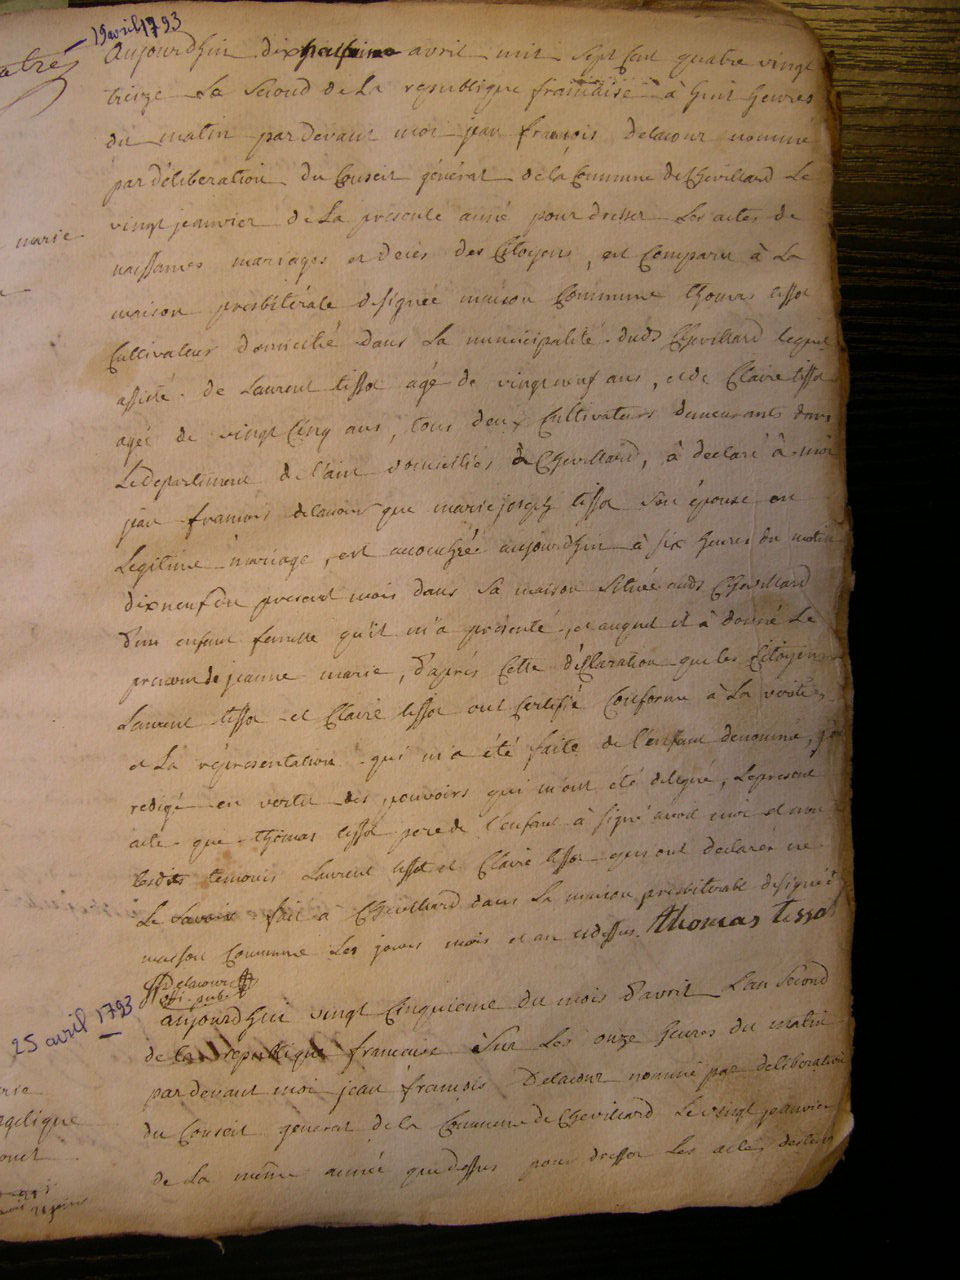 19 avril 1793
Aujourdhui dix avril mil sept cent quatre vingt
treize le second de la republique francaise à huit heures
du matin par devant moi jean francois delacour nommé
par déliberation du Conseil général de la Commune de Chevillard le
vingt jeanvier de la presente année pour dresser les actes de
naissances mariages et decès des Citoyens, est Comparu à la
maison presbitérale designée maison Commune thomas tissot
Cultivateur domicilié dans la municipalité dudt Chevillard lequel
assisté de Laurent tissot agé de vingt neuf ans, et de Claire tissot
agée de vingt Cinq ans, tous deux Cultivateurs demeurants dans
Le departement de l'ain domiciliés à Chevillard, à declaré à moi
jean francois delacour que marie joseph tissot son épouse en
Legitime mariage, est accouchée aujourdhui à six heures du matin
dix neuf du present mois dans sa maison située audt Chevillard
d'un enfant femelle qu'il m'a présenté, et auquel il à donné le
prenom de jeanne marie, d'après Cette déclaration que les Citoyens
Laurent tissot et Claire tissot ont Certifié Conforme à la verité
et la réprésentation qui m'a été faite de l'enfant denommé, j'ai
redigé en vertu des pouvoirs qui m'ont été delegué, le present
acte que thomas tissot pere de l'enfant à signé avec moi et non
lesdits temoins Laurent tissot et Claire tissot qui ont declarér ne
le savoir fait à Chevillard dans la maison presbiterale designée
maison Commune les jours mois et an cidessus. thomas tissot
Delacour
offi. pub.
25 avril 1793
aujourdhui vingt Cinquieme du mois d'avril l'an Second
de la republique francaise sur les onze heures du matin
par devant moi jean francois Delacour nommé par deliberation
du Conseil general de la Commune de Chevillard le vingt jeanvier
de la même année que dessus pour dresser les actes destinés
marie